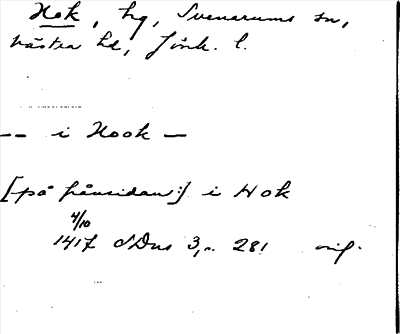 Hok, hg, Svenarums sn,
Västra hd, Jönk. l.
-- i Hook —
[på frånsidan:] i Hok
4/10
1417 SDns 3, s. 281 orig.